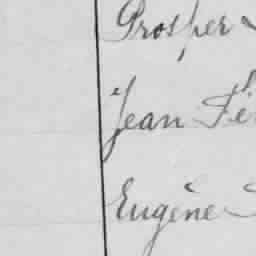 Prosper
Jean Fé
Eugène